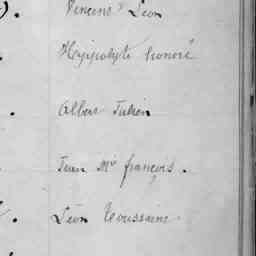 Vincent Léon
Hyppolyte honoré
Albert Julien
Jean Mie françois.
Léon Toussaint